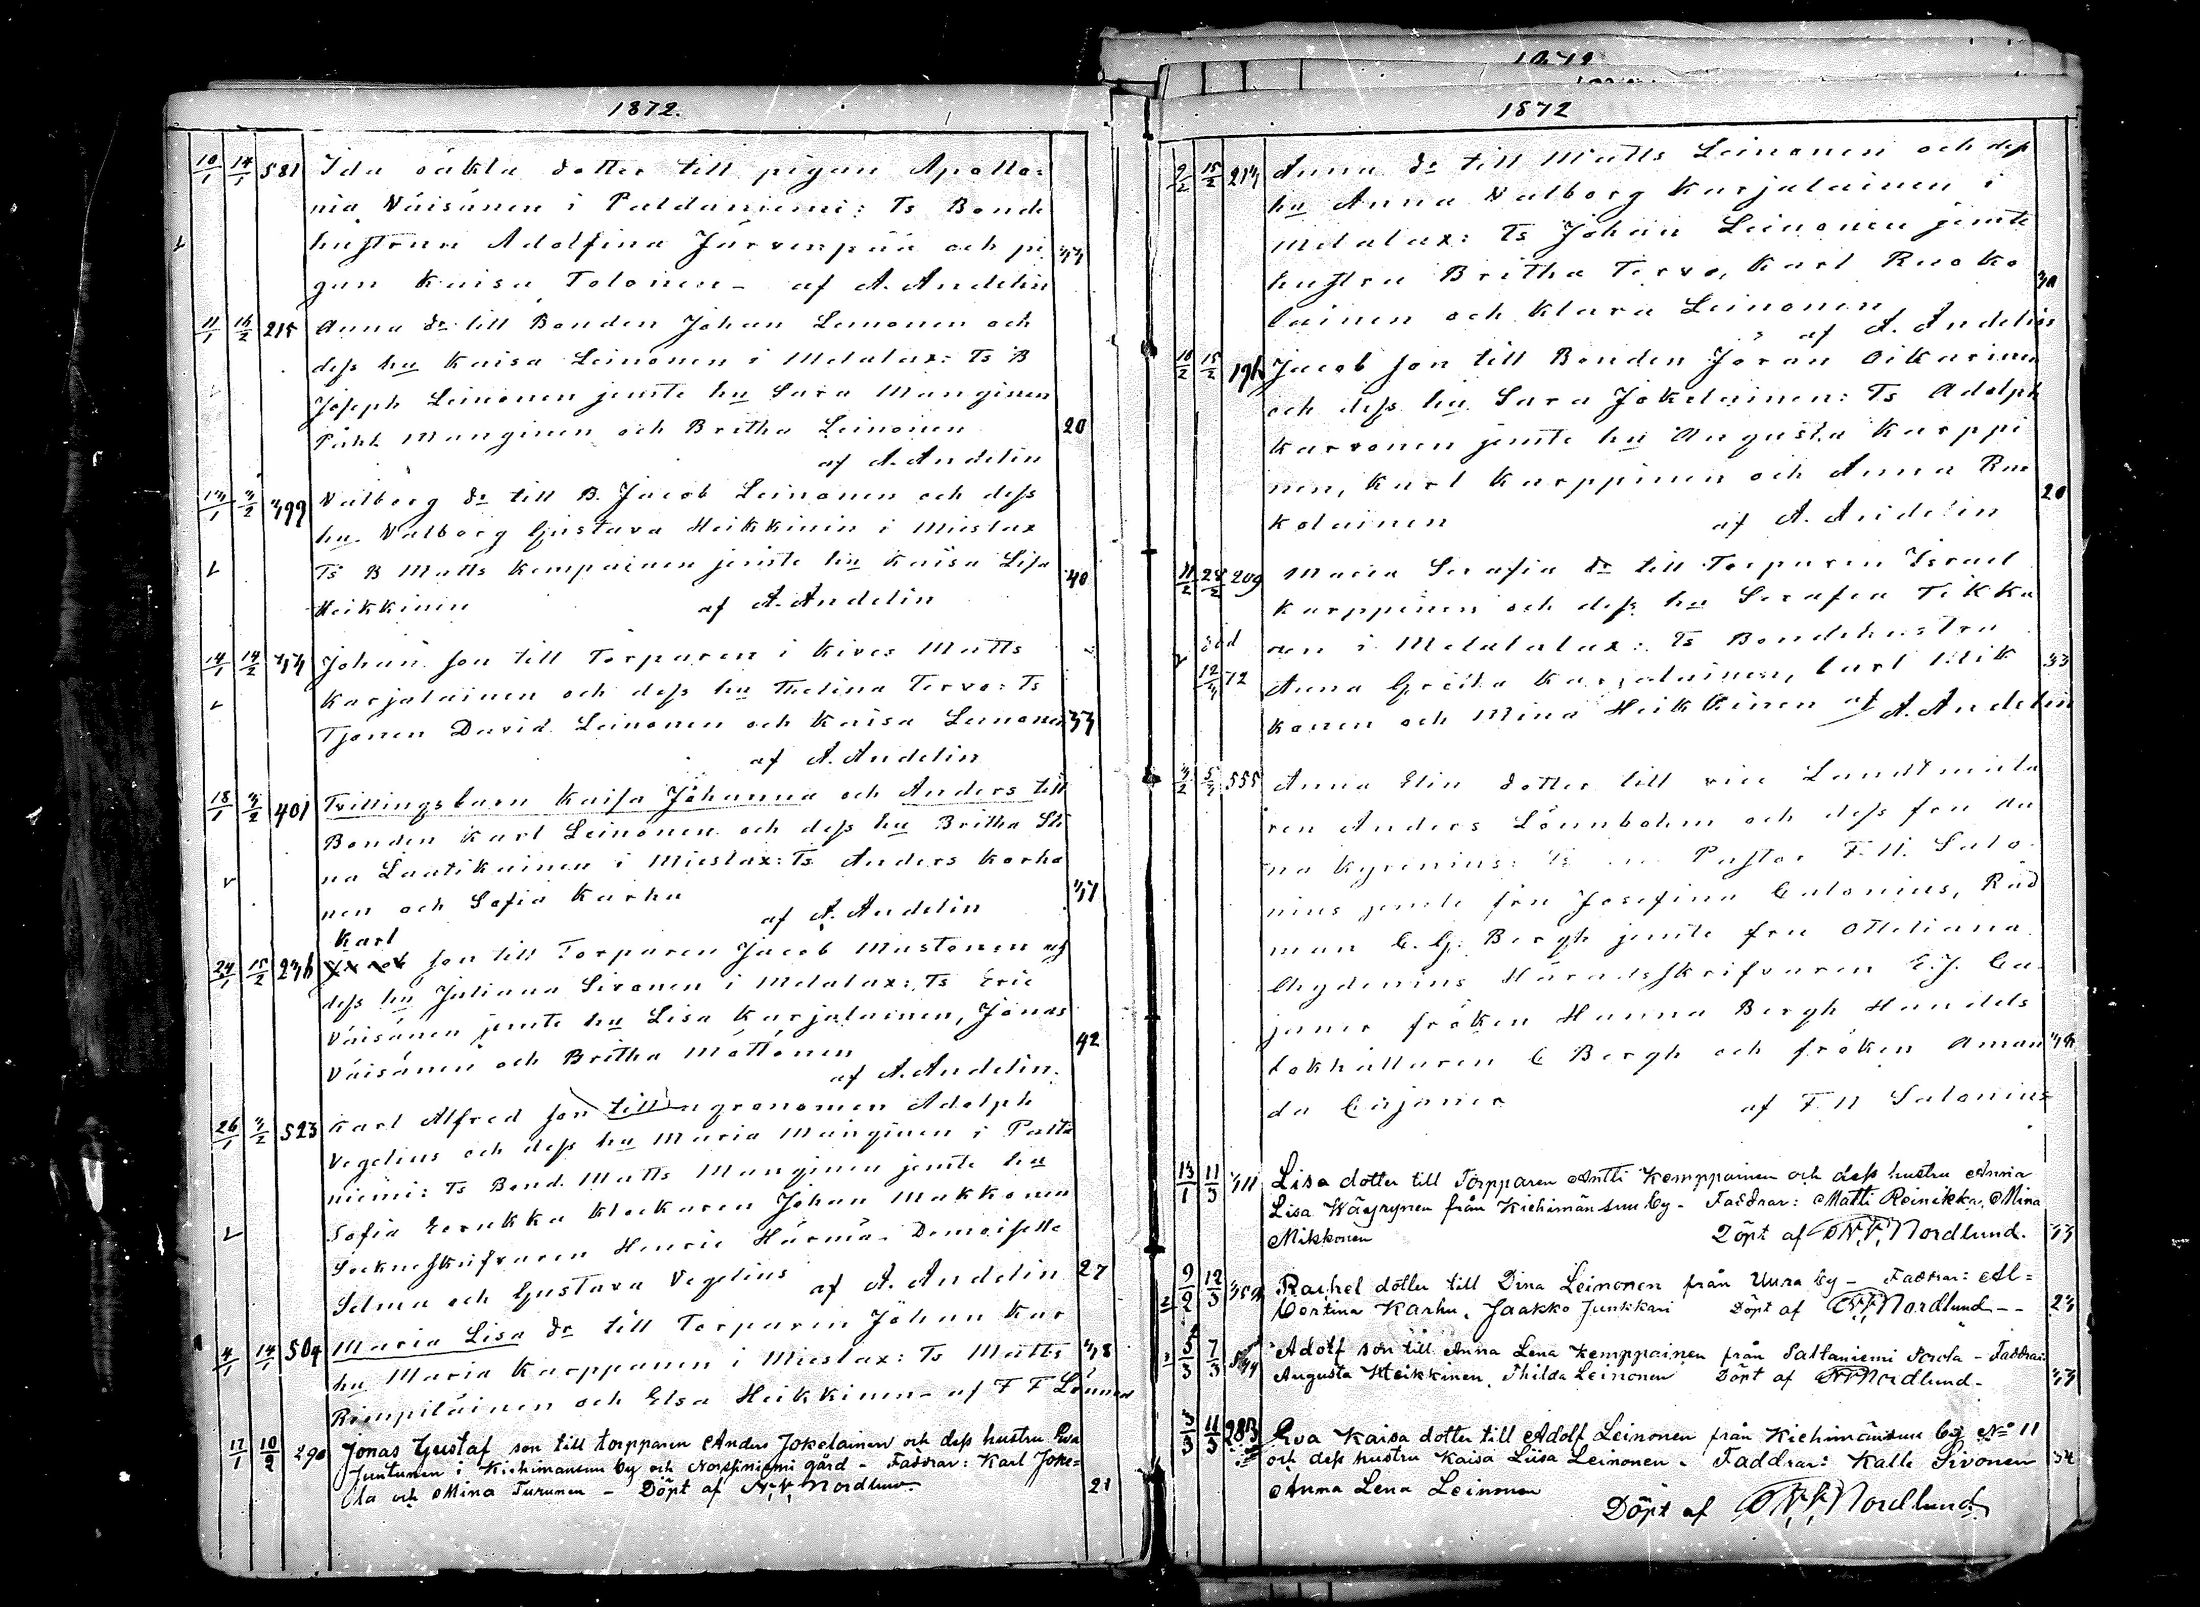 1872.
10/1 14/1 581 Ida oäkta dotter till pigan Apollo=
nia Väisänen i Paldaniemi: Ts Bonde
hustrun Adolfina Järvenpää och pi
gan Kaisa Tolonen - af A. Andelin
11/1 16/2 215 Anna dr till Bonden Johan Leinonen och
dess hu Kaisa Leinonen i Melalax: Ts B
Joseph Leinonen jemte hu Sara Manginen
Påhl Manginen och Britha Leinonen 20
af A. Andelin
Valborg dr till B. Jacob Leinonen och dess
hu. Valborg Gustava Heikkinen i Mieslax
Ts B Matts Kempainen jemte hu Kaisa Lisa 40
Heikkinen af A. Andelin
14/1 14/2 Johan son till Torparen i Kives Matts
Karjalainen och dess hu Thelina Tervo: Ts
Tjonen David Leinonen och Kaisa Leinonen
af A. Andelin
18/1 401 Tvillingsbarn Kaisa Johanna och Anders till
Bonden Karl Leinonen och dess hu Britha Sti
na Lautikainen i Mieslax: Ts Anders Korho
nen och Sofia Karhu
af A. Andelin
Karl
24/1 15/2 son till Torparen Jacob Mustonen och
dess hu Juliana Sivonen i Melalax: Ts Eric
Väisänen jemte hu Lisa Karjalainen, Jonas
Väisänen och Britha Möttönen 42
af A. Andelin.
26/1 523 Karl Alfred son till agronomen Adolph
Vegelius och dess hu Maria Manginen i Palta
niemi: Ts Bond. Matts Manginen jemte hu
Sofia Eerukka Klockaren Johan Makkonen
Sockneskrifvaren Henric Härmä. Demoiselle
Selma och Gustava Vegelius af A. Andelin 27
4/1 14/1 504 Maria Lisa dr till Torparen Johan Kar
hu Maria Karppanen i Mieslax: Ts Matts
Rimpiläinen och Elsa Heikkinen - af F F Lönnrot
17/1 10/2 290 Jonas Gustaf son till torpparen Anders Jokelainen och dess hustru Eva
Juntunen i Kiehimänsuu by och Norssiniemi gård - Faddrar: Karl Joke=
la och Mina Turunen - Döpt af N.V. Nordlund 21
1872
9/2 15/2 Anna dr till Matts Leinonen och dess
hu Anna Valborg Karjalainen i
Melalax: Ts Johan Leinonen jemte
hustru Britha Tervo, Karl Ruoko
lainen och Klara Leinonen
af A. Andelin
10/2 15/2 Jacob son till Bonden Jöran Oikarinen
och dess hu Sara Jokelainen: Ts Adolph
Karvonen jemte hu Augusta Karppi
nen, Karl Karppinen och Anna Ruo 20
kolainen af A. Andelin
11/2 209 Maria Serafia dr till Torparen Israel
Karppinen och dess hu Serafia Tikka
nen i Melalalax: Ts Bondehustru
död
72 Anna Greta Karjalainen, Carl Mik 33
konen och Mina Heikkinen af A. Andelin
555 Anna Elin dotter till vice Landtmäta
ren Anders Lönnbohm och dess fru An
na Kyrenius: Ts Pastor F. N. Salo
nius jemte fru Josefina Calonius, Råd
man C. G. Bergh jemte fru Ottiliana
Chydenius Häradsskrifvaren E. J. Ca
janer fröken Hanna Bergh Handels
bokhållaren C Bergh och fröken Aman
da Cajaner af F. N Salonius
13/1 11/3 Lisa dotter till Torpparen Antti Kemppainen och dess hustru Anna
Lisa Wäyrynen från Kiehimänsuu by - Faddrar: Matti Reinikka, Mina
Mikkonen Döpt af N.V. Nordlund.
9/2 12/3 Rachel dotter till Dina Leinonen från Uura by - Faddrar: Al=
bertina Karhu, Jaakko Junkkari Döpt af N.V. Nordlund - - 23
5/3 7/3 Adolf son till Anna Lena Kemppainen från Paltaniemi - Faddrar:
Augusta Heikkinen, Thilda Leinonen Döpt af N.V. Nordlund -
3/3 11/3 283 Eva Kaisa dotter till Adolf Leinonen från Kiehimänsuu by No 11
och dess hustru Kaisa Liisa Leinonen - Faddrar: Kalle Sivonen 34
Anna Lena Leinonen
Döpt af N.V. Nordlund